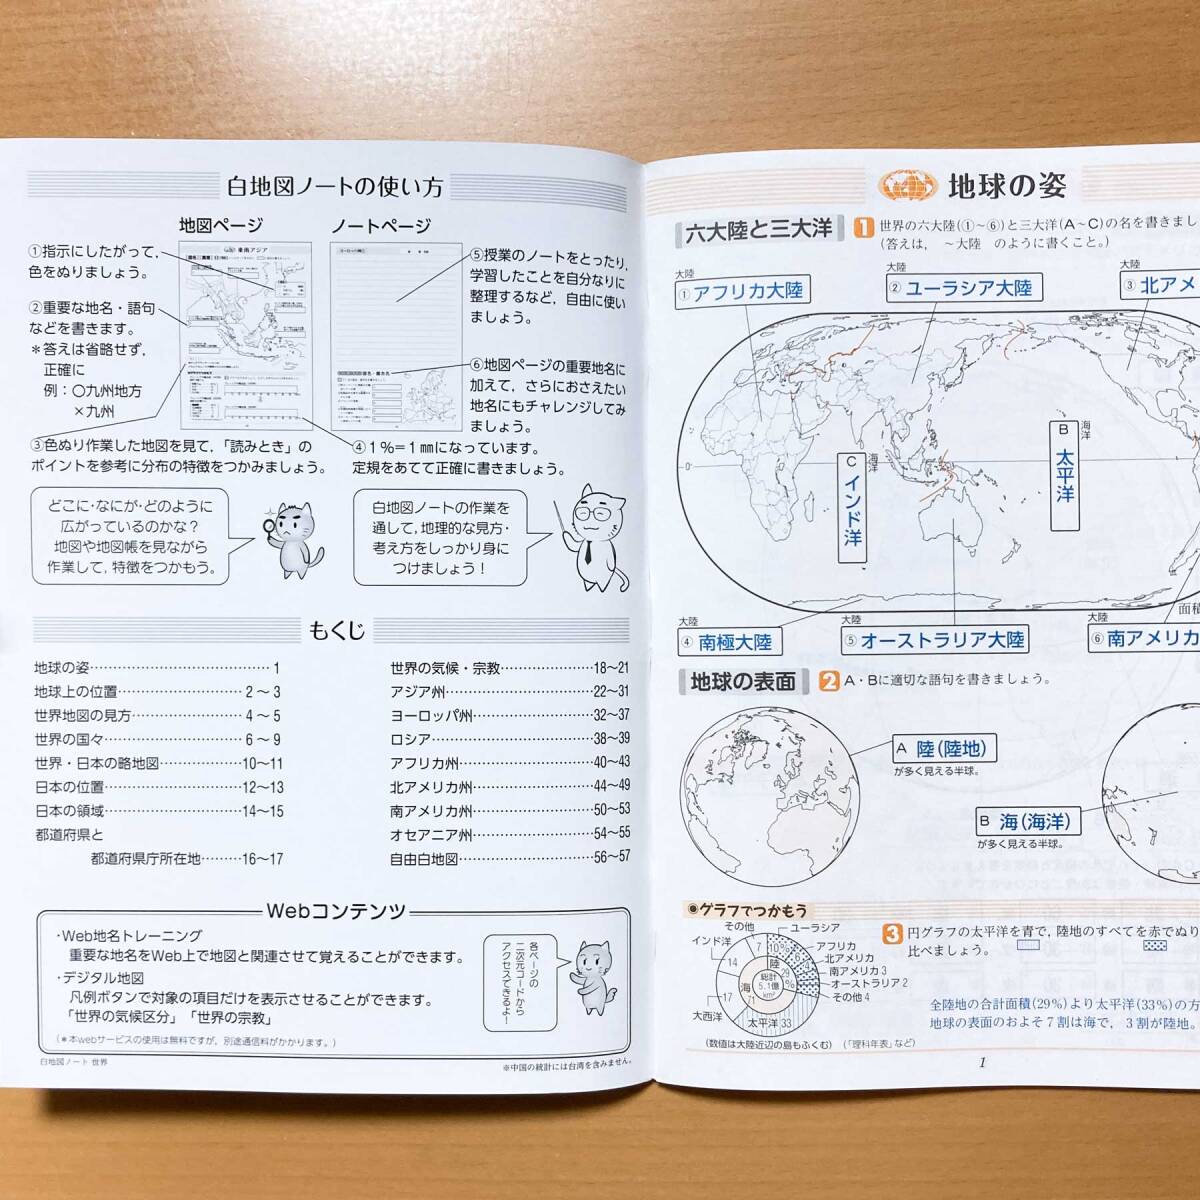 白地図ノートの使い方
地図ページ
ノートページ
①指示にしたがって，
色をぬりましょう。
②重要な地名・語句
などを書きます。
＊答えは省略せず，
正確に
例：○九州地方
×九州
東南アジア
⑤授業のノートをとったり，
学習したことを自分なりに
整理するなど，自由に使い
ましょう。
⑥地図ページの重要地名に
加えて，さらにおさえたい
地名にもチャレンジしてみ
ましょう。
③色ぬり作業した地図を見て，「読みとき」の
ポイントを参考に分布の特徴をつかみましょう。
④１％＝１㎜になっています。
定規をあてて正確に書きましょう。
どこに・なにが・どのように
広がっているのかな？
地図や地図帳を見ながら
作業して，特徴をつかもう。
白地図ノートの作業を
通して，地理的な見方・
考え方をしっかり身に
つけましょう！
もくじ
地球の姿 1
地球上の位置 2～3
世界地図の見方 4～5
世界の国々 6～9
世界・日本の略地図 10～11
日本の位置 12～13
日本の領域 14～15
都道府県と
都道府県庁所在地 16～17
世界の気候・宗教 18～21
アジア州 22～31
ヨーロッパ州 32～37
ロシア 38～39
アフリカ州 40～43
北アメリカ州 44～49
南アメリカ州 50～53
オセアニア州 54～55
自由白地図 56～57
Webコンテンツ
・Web地名トレーニング
重要な地名をWeb上で地図と関連させて覚えることができます。
・デジタル地図
凡例ボタンで対象の項目だけを表示させることができます。
「世界の気候区分」「世界の宗教」
（＊本webサービスの使用は無料ですが，別途通信料がかかります。）
各ページの
二次元コードから
アクセスできるよ！
白地図ノート 世界
※中国の統計には台湾を含みません。
地球の姿
六大陸と三大洋
1 世界の六大陸(①～⑥)と三大洋(A～C)の名を書きまし
(答えは，～大陸 のように書くこと。)
大陸
① アフリカ大陸
大陸
② ユーラシア大陸
大陸
③ 北アメ
0°
C インド洋
海洋
B 太平洋
海洋
面積
大陸
④ 南極大陸
大陸
⑤ オーストラリア大陸
大陸
⑥ 南アメリカ
地球の表面
2 A・Bに適切な語句を書きましょう。
A 陸(陸地)
が多く見える半球。
B 海(海洋)
が多く見える半球。
◉グラフでつかもう
その他
7
ユーラシア
10%
アフリカ
北アメリカ
南アメリカ 3
オーストラリア 2
その他 4
インド洋
14
17
大西洋
海
71
陸
29
%
総計
5.1億
km²
太平洋 33
(数値は大陸近辺の島もふくむ) (「理科年表」など)
3 円グラフの太平洋を青で，陸地のすべてを赤でぬり
比べましょう。
全陸地の合計面積(29%)より太平洋(33%)の方
地球の表面のおよそ７割は海で，３割が陸地。
1